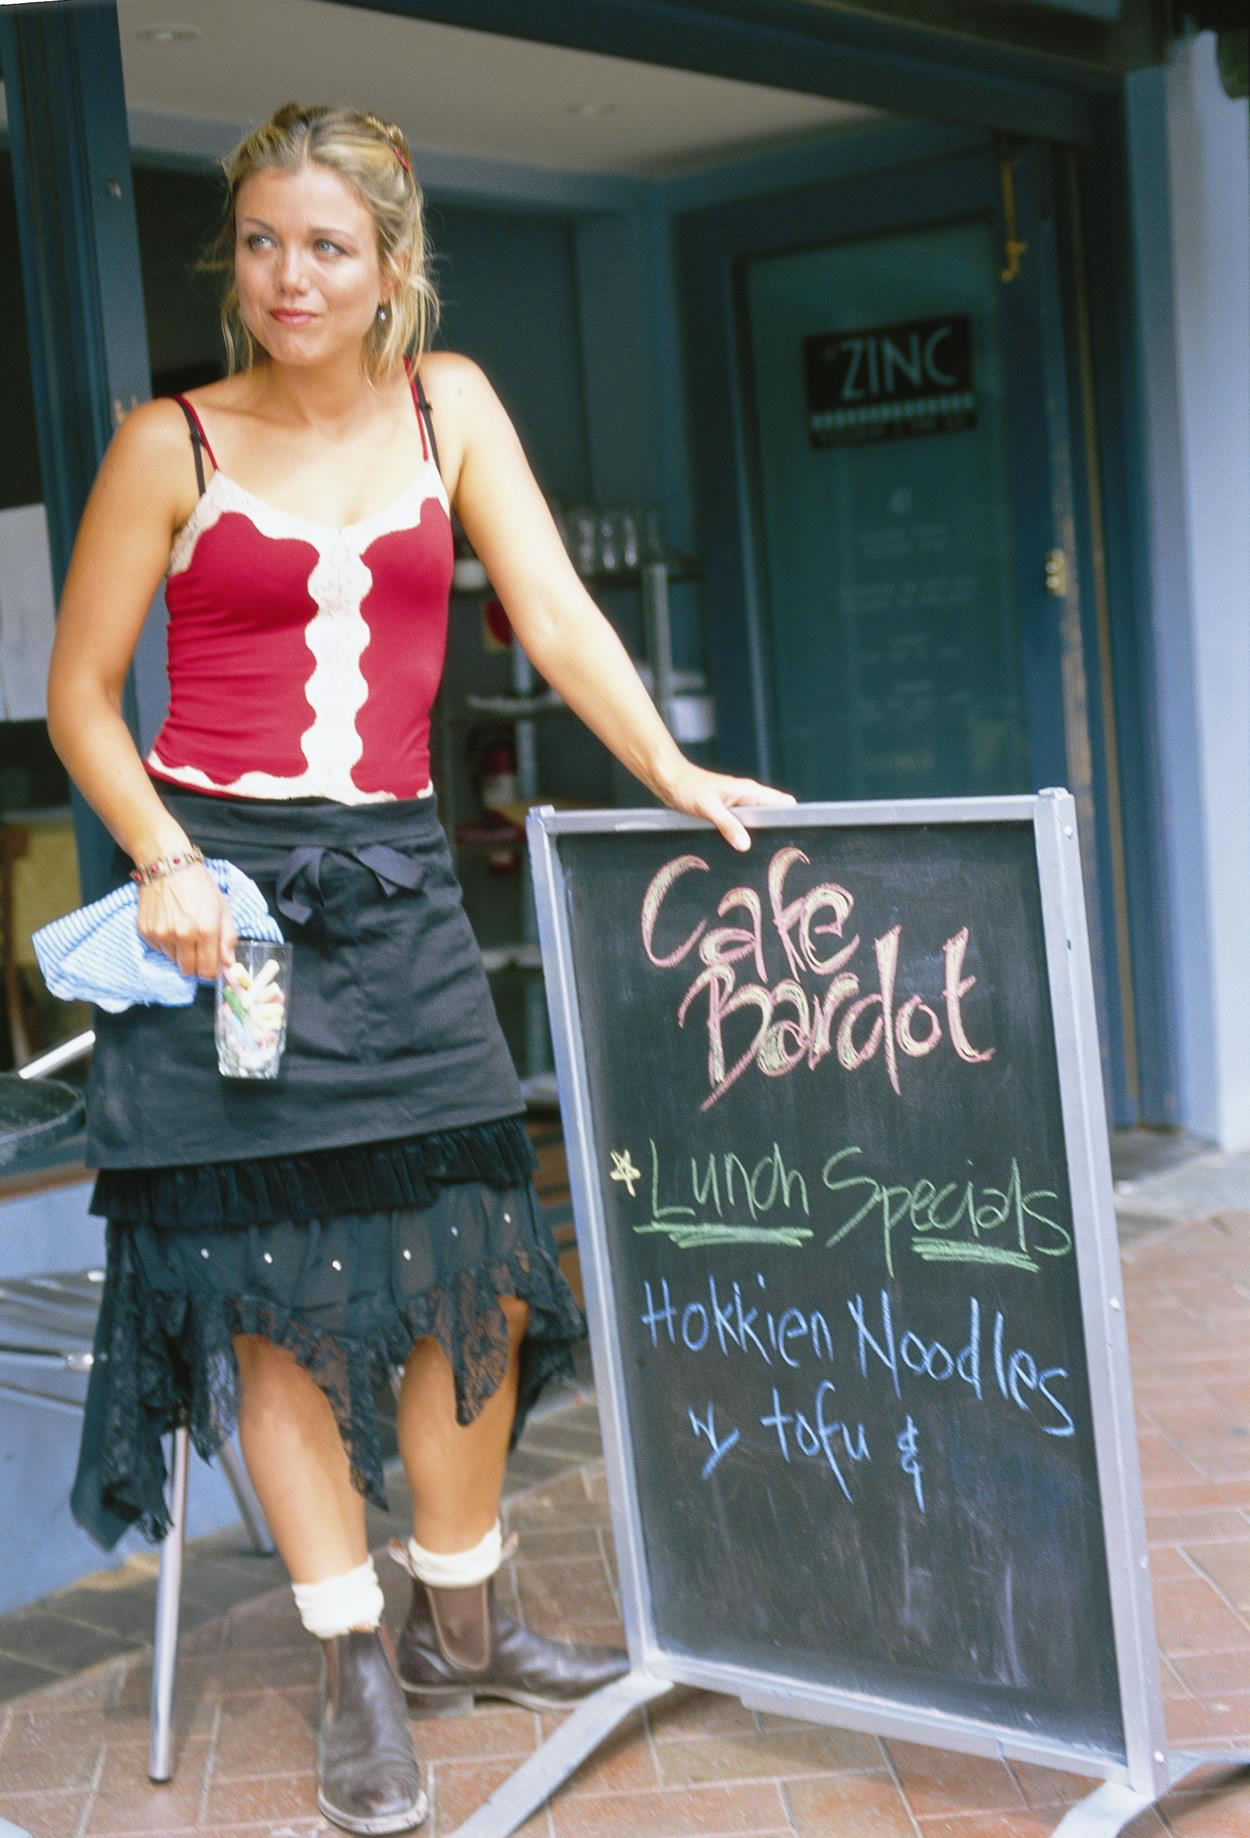 ZINC
Cafe
Bardot
Lunch Specials
Hokkien Noodles
w tofu &